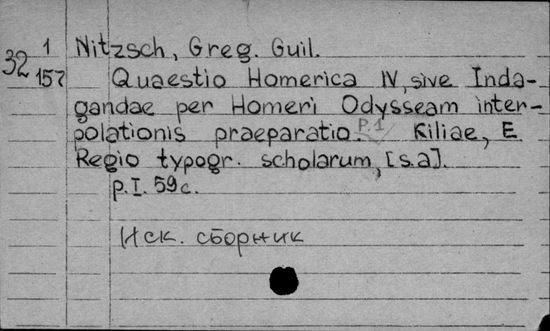 32 1/157
Nitzsch, Greg. Guil.
Quaestio Homerica IV, sive Inda-
gandae per Homeri Odysseam inter-
polationis praeparatio. P.1 Kiliae, E
Regio typogr. scholarum, [s.a].
p.I. 59 c.
Иск. сборник